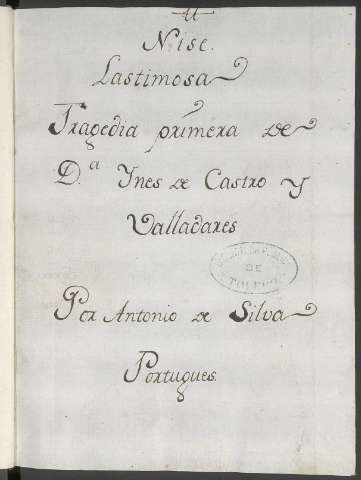 Nise
Lastimosa
Tragedia primera de
D.ª Ynes de Castro y
Valladares
DE
TOLEDO
Por Antonio de Silva
Portugues.